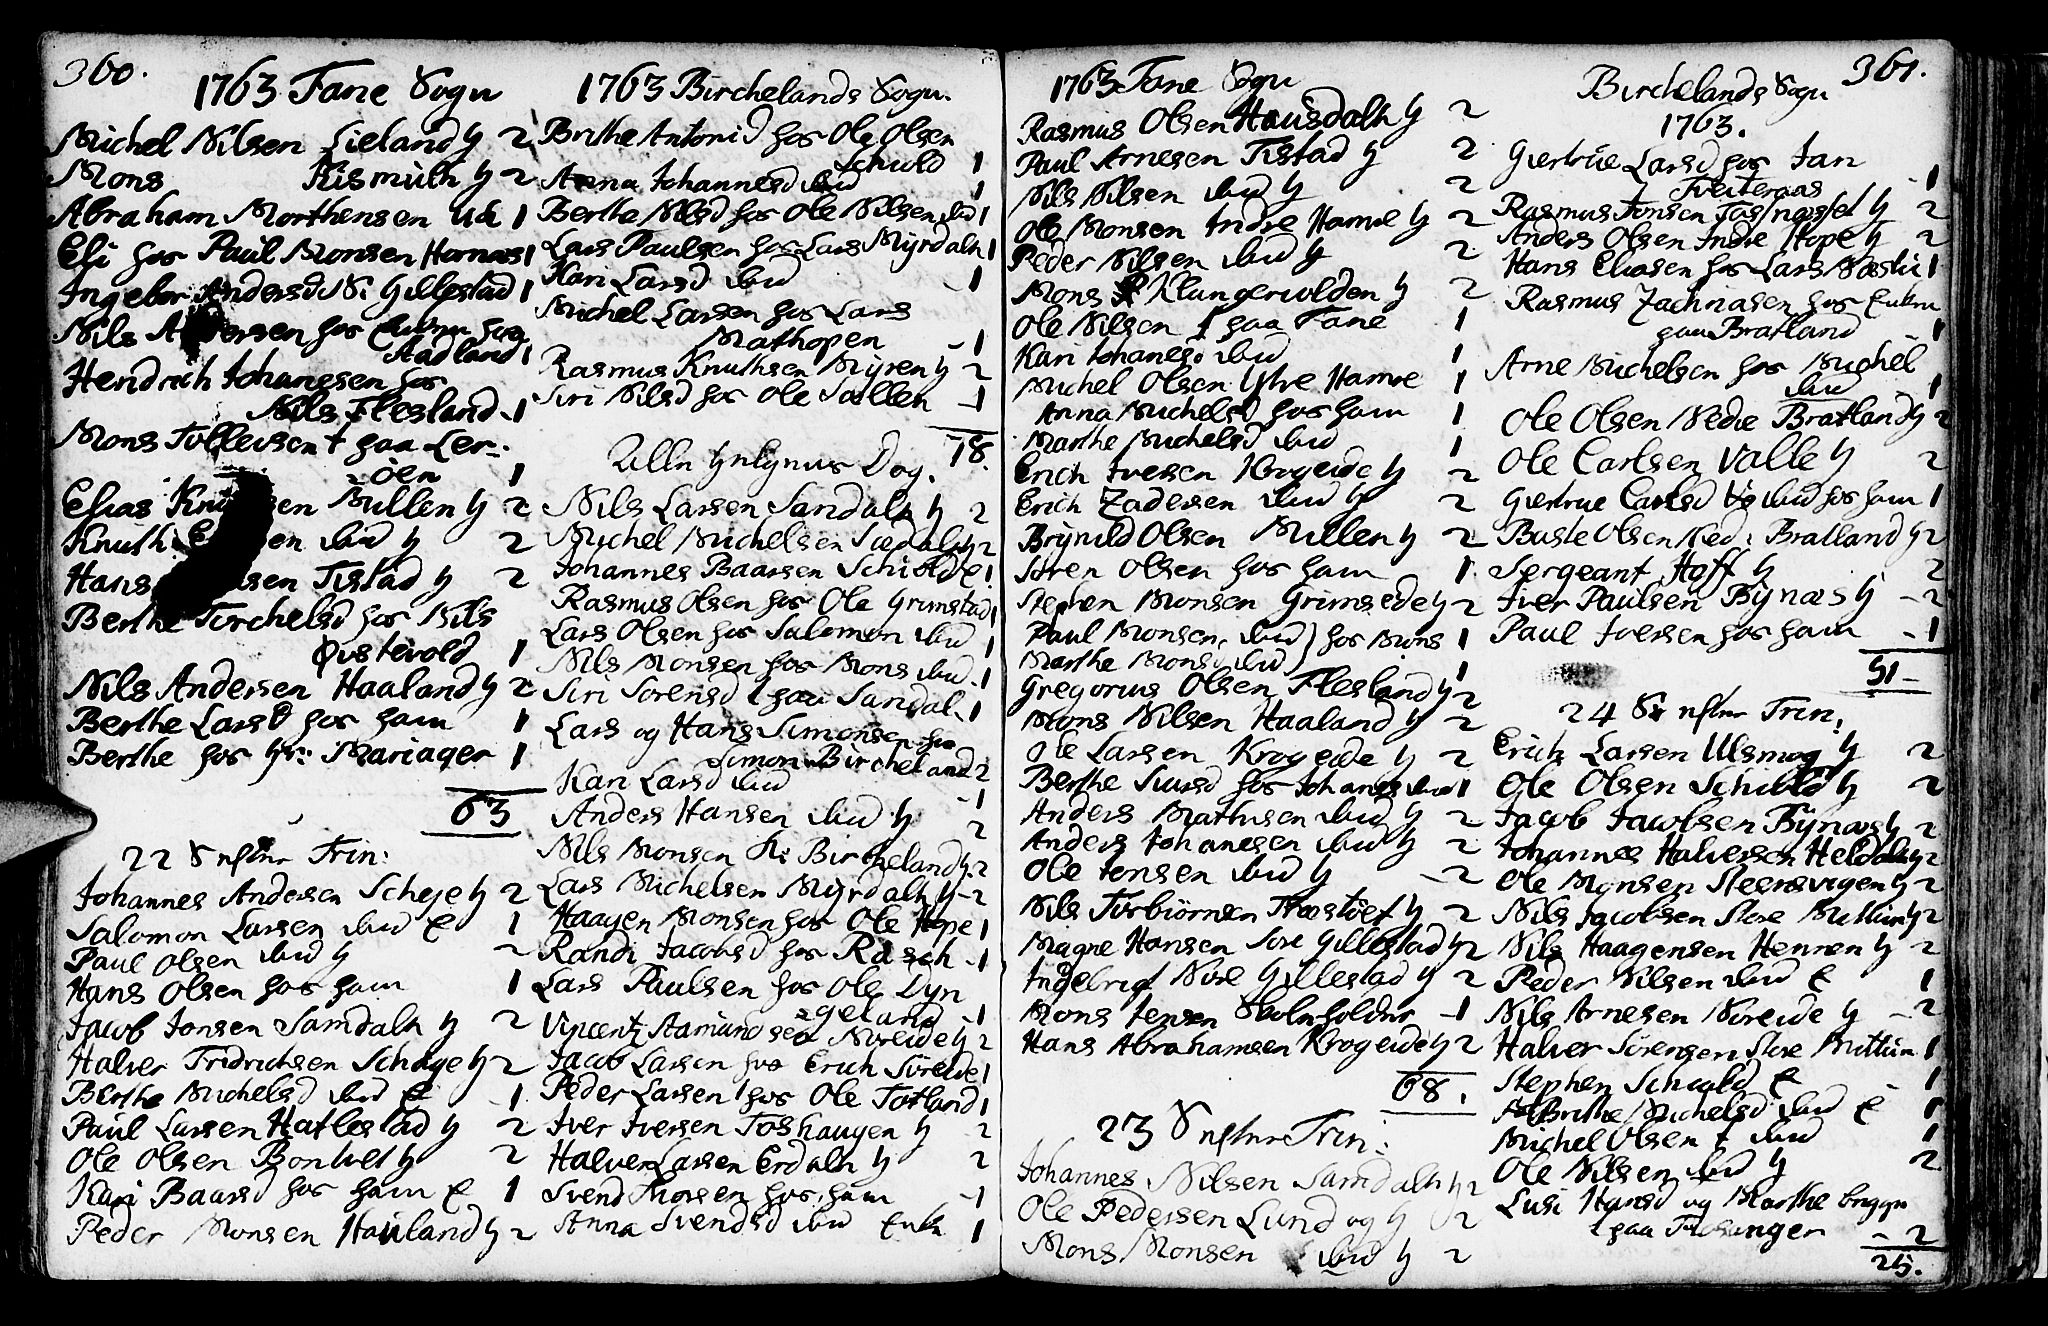 360.
1763 Fane Sogn
Michel Nilsen Lieland H 2
Mons Rismulh H 2
Abraham Morthensen 1
Eli hos Paul Monsen Hornæs 1
Ingebor Andersd N: Gillestad 1
Nils hos
Aadland 1
Hendrich Johannesen hos
Nils Flesland - 1
Mons Tollevsen paa Ler-
öen 1
Elias Millen H 2
Knuth ibid H 2
Hans Tistad H 2
Berthe Torchelsd hos Nils
Øvstevold 1
Nils Andersen Haaland H 2
Berthe Larsd hos ham 1
Berthe hos Hr: Mariager 1
63
22 S efter Trin:
Johannes Andersen Scheje H 2
Salomon Larsen ibid E 1
Paul Olsen ibid H 2
Hans Olsen hos ham 1
Jacob Jonsen Samdaln H 2
Halver Fridrichsen Scheje H 2
Berthe Michelsd ibid E 1
Paul Larsen Hatlestad H 2
Ole Olsen Bontvet H 2
Kari Baarsd hos ham E 1
Peder Monsen Hauland H 2
1763 Birchelands Sogn.
Brithe Antonid hos Ole Olsen
Schiold 1
Anna Johannesd ibid 1
Berthe Nilsd hos Ole Nilsen ibid 1
Lars Paulsen hos Lars Myrdaln 1
Kari Larsd ibid - 1
Michel Larsen hos Lars
Mathopen - 1
Rasmus Knuthsen Myren H 2
Siri Nilsd hos Ole Sællen - 1
78.
Alle Helgens Dag.
Nils Larsen Sandaln H 2
Michel Michelsen Sædaln H 2
Johannes Baarsen Schiold E 1
Rasmus Olsen hos Ole Grimstad 1
Lars Olsen hos Salomon ibid 1
Nils Monsen hos Mons ibid - 1
Siri Sorensd paa Sandal - 1
Lars og Hans Simonsen hos
Simon Bircheland 2
Kari Larsd ibid - 1
Anders Hansen ibid H 2
Nils Monsen Bircheland H 2
Lars Michelsen Myrdaln H - 2
Haagen Monsen hos Ole Hope 1
Randi Jacobsd hos Rasch - 1
Lars Paulsen hos Ole Dyn
geland - 1
Vincentz Aamundsen Noreide H 2
Jacob Larsen hos Erich Søreide 1
Peder Larsen hos Ole Totland 1
Iver Iversen Toshaugen H 2
Halver Larsen Erdaln H 2
Svend Thorsen hos ham - 1
Anna Svendsd ibid Enke 1
1763 Fane Sogn
Rasmus Olsen Hausdaln H 2
Paul Arnesen Tistad H 2
Nils Nilsen ibid H 2
Ole Monsen Indre Hamre H 2
Peder Nilsen ibid H 2
Mons Klungervolden H 2
Ole Nilsen paa Fane 1
Kari Johanesd ibid 1
Michel Olsen Ytre Hamre 1
Anna Michelsd hos ham 1
Marthe Michelsd ibid 1
Erich Iversen Krogeide H 2
Erich Zadersen ibid H 2
Brynild Olsen Millen H 2
Soren Olsen hos ham 1
Stephen Monsen Grimseide H 2
Paul Monsen ibid hos Mons 1
Marthe Monsd ibid 1
Gregorius Olsen Flesland H 2
Mons Nilsen Haaland H 2
Ole Larsen Krogeide H 2
Berthe Siursd hos Johanes ibid 1
Anders Mathisen ibid H 2
Anders Johanesen ibid H 2
Ole Jensen ibid H - 2
Nils Torbiörnsen Træstöet H 2
Magne Hansen Sore Gillestad H 2
Ingebrigt Nore Gillestad H 2
Mons Jensen Skoleholder - 1
Hans Abrahamsen Krogeide H 2
68.
23 S efter Trin:
Johannes Nilsen Samdaln H 2
Ole Pedersen Lund og H 2
Mons Monsen ibid H 2
361.
Birchelands Sogn
1763.
Giertrue Larsd hos Jan
Tveiteraas - 1
Rasmus Jonsen H 2
Anders Olsen Indre Hope H 2
Hans Eliasen hos Lars 1
Rasmus Zachriasen hos Enken
paa Bratland - 1
Arne Michelsen hos Michel
ibid 1
Ole Olsen Nedre Bratland H 2
Ole Carlsen Valle H 2
Giertrue Carlsd ibid hos ham 1
Baste Olsen Ned: Bratland H 2
Sergeant Hoff H 2
Iver Paulsen Bÿnæs H - 2
Paul Iversen hos ham - 1
51 -
24 S efter Trin:
Erich Larsen Ulsmog H 2
Ole Olsen Schiold H 2
Jacob Jacobsen Bÿnæs H 2
Johannes Halversen Heldaln H 2
Ole Monsen Steensvigen H 2
Nils Jacobsen Store Millium H 2
Nils Haagensen Hennen H 2
Peder Nilsen ibid E 1
Nils Arnesen Noreide H - 2
Halver Sörensen Store 1
Stephen Schiold E - 1
Brithe Michelsd ibid E 1
Michel Olsen ibid 1
Ole Nilsen ibid H 2
Lusi Hansd og Marthe begge
paa - 2
25.